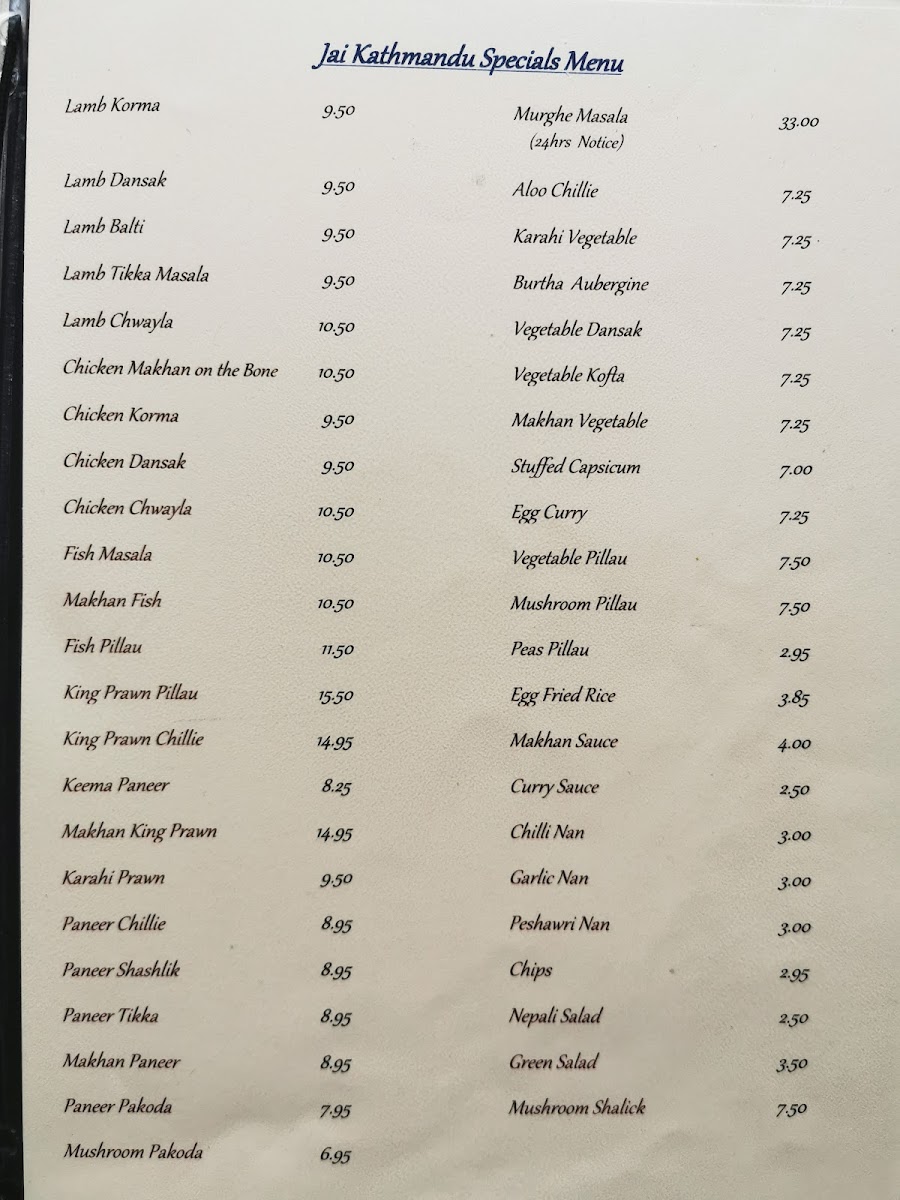 Jai Kathmandu Specials Menu
Lamb Korma 9.50
Lamb Dansak 9.50
Lamb Balti 9.50
Lamb Tikka Masala 9.50
Lamb Chwayla 10.50
Chicken Makhan on the Bone 10.50
Chicken Korma 9.50
Chicken Dansak 9.50
Chicken Chwayla 10.50
Fish Masala 10.50
Makhan Fish 10.50
Fish Pillau 11.50
King Prawn Pillau 15.50
King Prawn Chillie 14.95
Keema Paneer 8.25
Makhan King Prawn 14.95
Karahi Prawn 9.50
Paneer Chillie 8.95
Paneer Shashlik 8.95
Paneer Tikka 8.95
Makhan Paneer 8.95
Paneer Pakoda 7.95
Mushroom Pakoda 6.95
Murghe Masala 33.00
(24hrs Notice)
Aloo Chillie 7.25
Karahi Vegetable 7.25
Burtha Aubergine 7.25
Vegetable Dansak 7.25
Vegetable Kofta 7.25
Makhan Vegetable 7.25
Stuffed Capsicum 7.00
Egg Curry 7.25
Vegetable Pillau 7.50
Mushroom Pillau 7.50
Peas Pillau 2.95
Egg Fried Rice 3.85
Makhan Sauce 4.00
Curry Sauce 2.50
Chilli Nan 3.00
Garlic Nan 3.00
Peshawri Nan 3.00
Chips 2.95
Nepali Salad 2.50
Green Salad 3.50
Mushroom Shalick 7.50